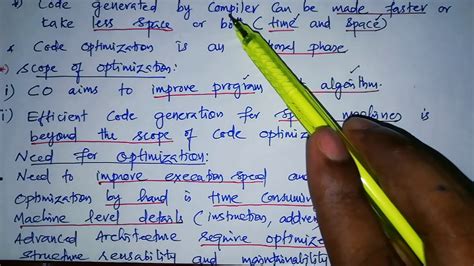 * Code generated by Compiler can be made faster or
take less space or both (time and space)
* Code optimization is an optional phase
*) Scope of optimization:
i) CO aims to improve program not algorithm.
ii) Efficient Code generation for machines is
beyond the scope of Code
Need for Optimization:
Need to improve execution speed and
Optimization by hand is time
Machine level details (instruction,
Advanced Architecture require
structure reusability and